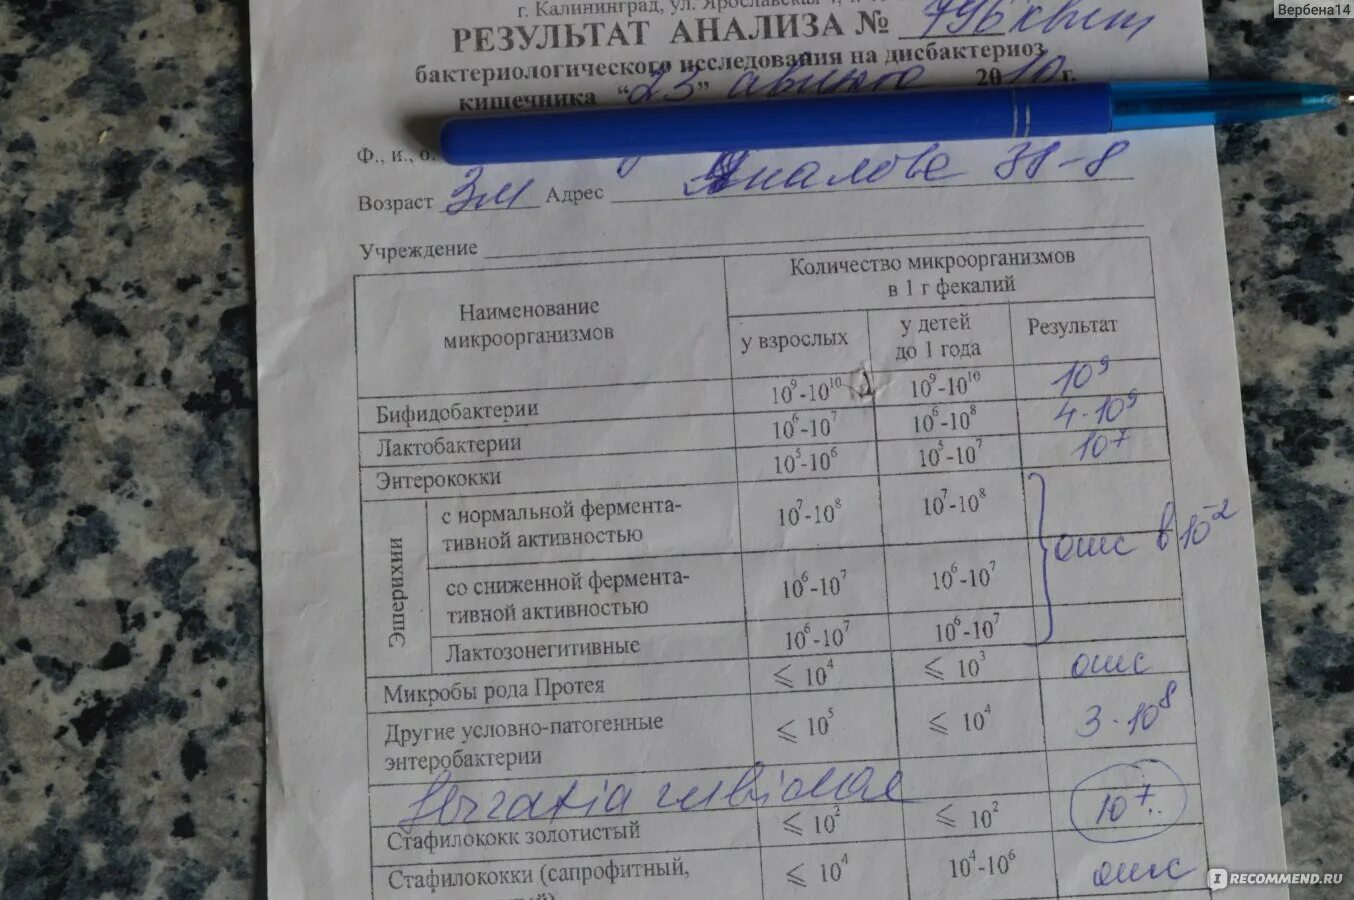 Вербена14
г. Калининград, ул. Ярославская
РЕЗУЛЬТАТ АНАЛИЗА № 796
бактериологического исследования на дисбактериоз
кишечника "23" августа 2010 г.
Ф., и., о.
Возраст 3м Адрес 38-8
Учреждение
Наименование микроорганизмов
Количество микроорганизмов
в 1 г фекалий
у взрослых у детей до 1 года Результат
Бифидобактерии 10⁹-10¹⁰ 10⁹-10¹⁰ 10⁹
Лактобактерии 10⁶-10⁷ 10⁶-10⁸ 4·10⁹
Энтерококки 10⁵-10⁶ 10⁵-10⁷ 10⁷
Эшерихии
с нормальной фермента-
тивной активностью 10⁷-10⁸ 10⁷-10⁸
отс в 10⁻²
со сниженной фермента-
тивной активностью 10⁶-10⁷ 10⁶-10⁷
Лактозонегитивные 10⁶-10⁷ 10⁶-10⁷
Микробы рода Протея ⩽ 10⁴ ⩽ 10³ отс
Другие условно-патогенные
энтеробактерии ⩽ 10⁵ ⩽ 10⁴ 3·10⁸
Стафилококк золотистый ⩽ 10² ⩽ 10² 10⁷
Стафилококки (сапрофитный, ⩽ 10⁴ 10⁴-10⁶ отс
IRECOMMEND.RU